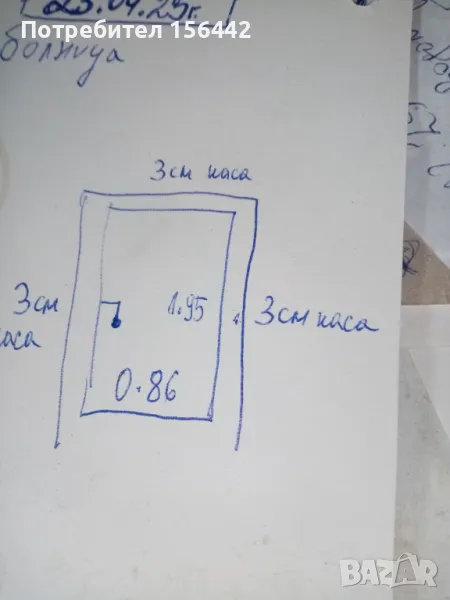 Потребител 156442
23.04.25г.
болница
3см каса
3см
каса
1.95
3см каса
0.86
BAZAR